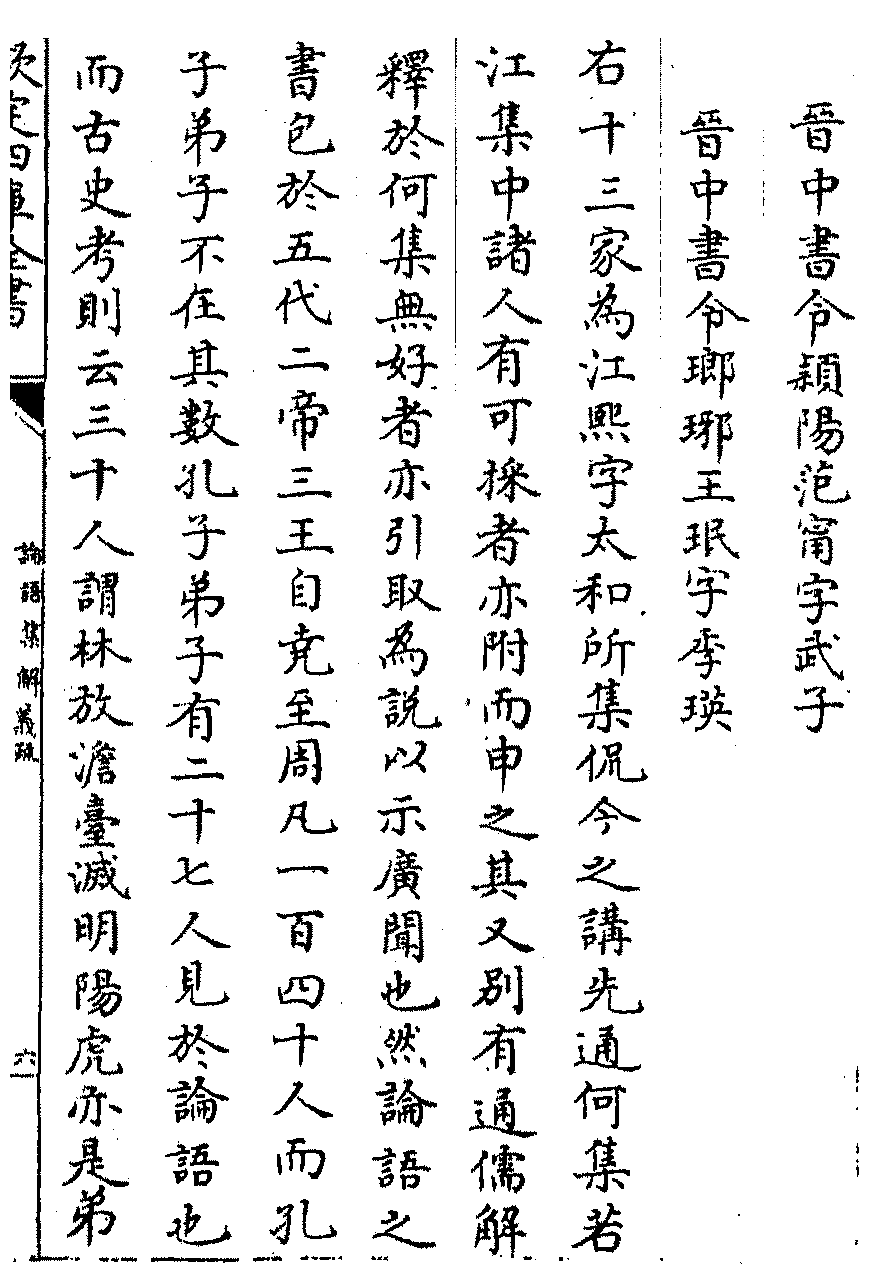 晉中書令穎陽范甯字武子
晉中書令瑯琊王珉字季瑛
右十三家為江熙字太和所集侃今之講先通何集若
江集中諸人有可採者亦附而申之其又別有通儒解
釋於何集無好者亦引取為說以示廣聞也然論語之
書包於五代二帝三王自堯至周凡一百四十人而孔
子弟子不在其數孔子弟子有二十七人見於論語也
而古史考則云三十人謂林放澹臺滅明陽虎亦是弟
欽定四庫全書
論語集解義疏
六